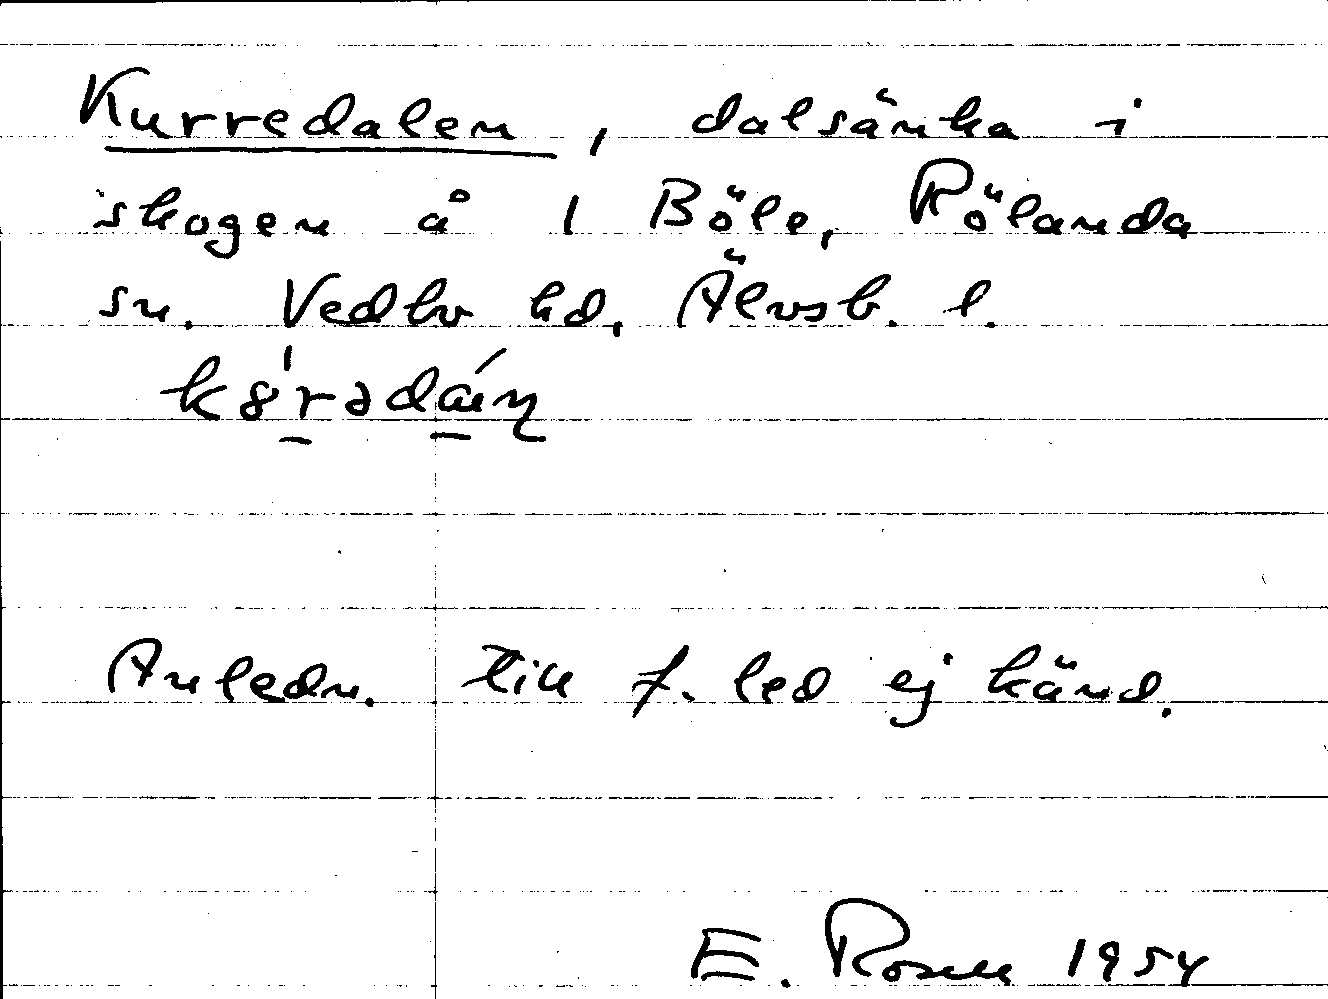 Kurredalen, dalsänka i
skogen å 1 Böle, Rölanda
sn. Vedbo hd, Älvsb. l.
Anledn. till f. led ej känd.
E. Rosell 1954